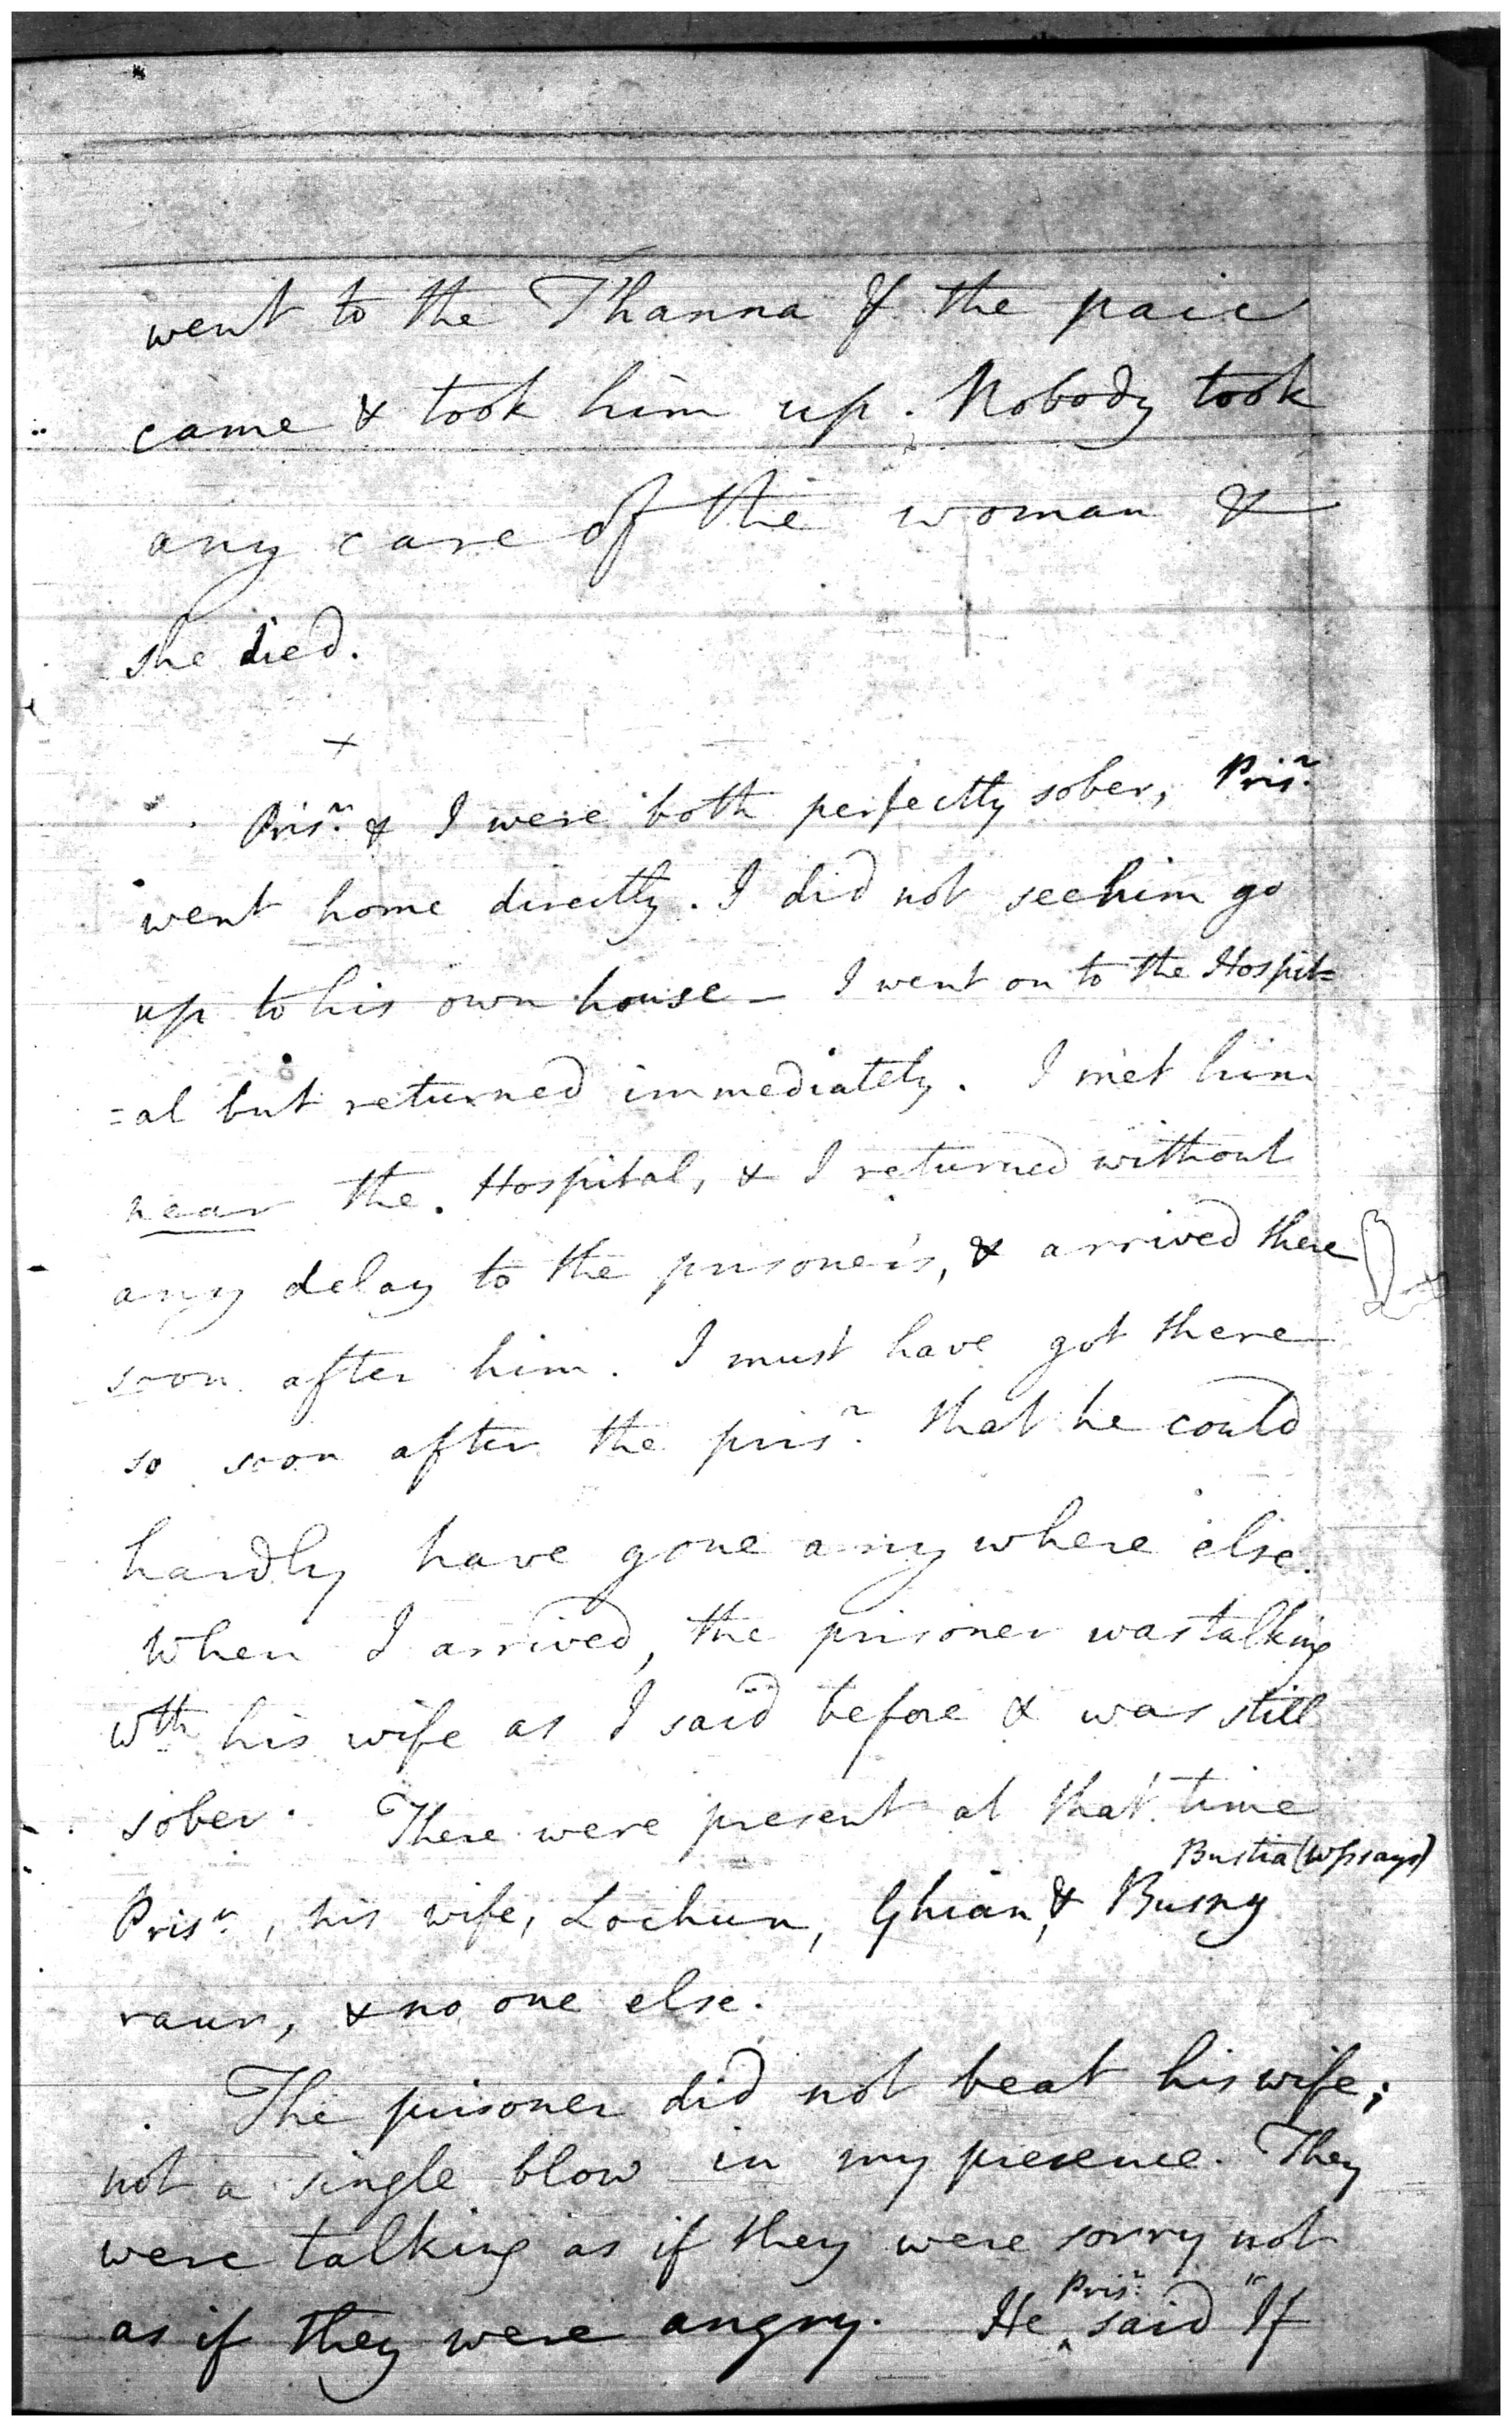 went to the Thanna & the paic
came & took him up. Nobody took
any care of the woman &
she died.
+
Prisr. & I were both perfectly sober, Prisr.
went home directly. I did not see him go
up to his own house - I went on to the Hospit=
=al but returned immediately. I met him
near the Hospital, & I returned without
any delay to the prisoner's, & arrived there
soon after him. I must have got there
so soon after the prisr. that he could
hardly have gone any where else.
When I arrived, the prisoner was talking
wth his wife as I said before & was still
sober. There were present at that time
Bustia (Wss says)
Prisr., his wife, Lochun, Ghian, & Busny
raur, & no one else.
The prisoner did not beat his wife;
not a single blow in my presence. They
were talking as if they were sorry not
as if they were angry. He ^ Prisr. said "If